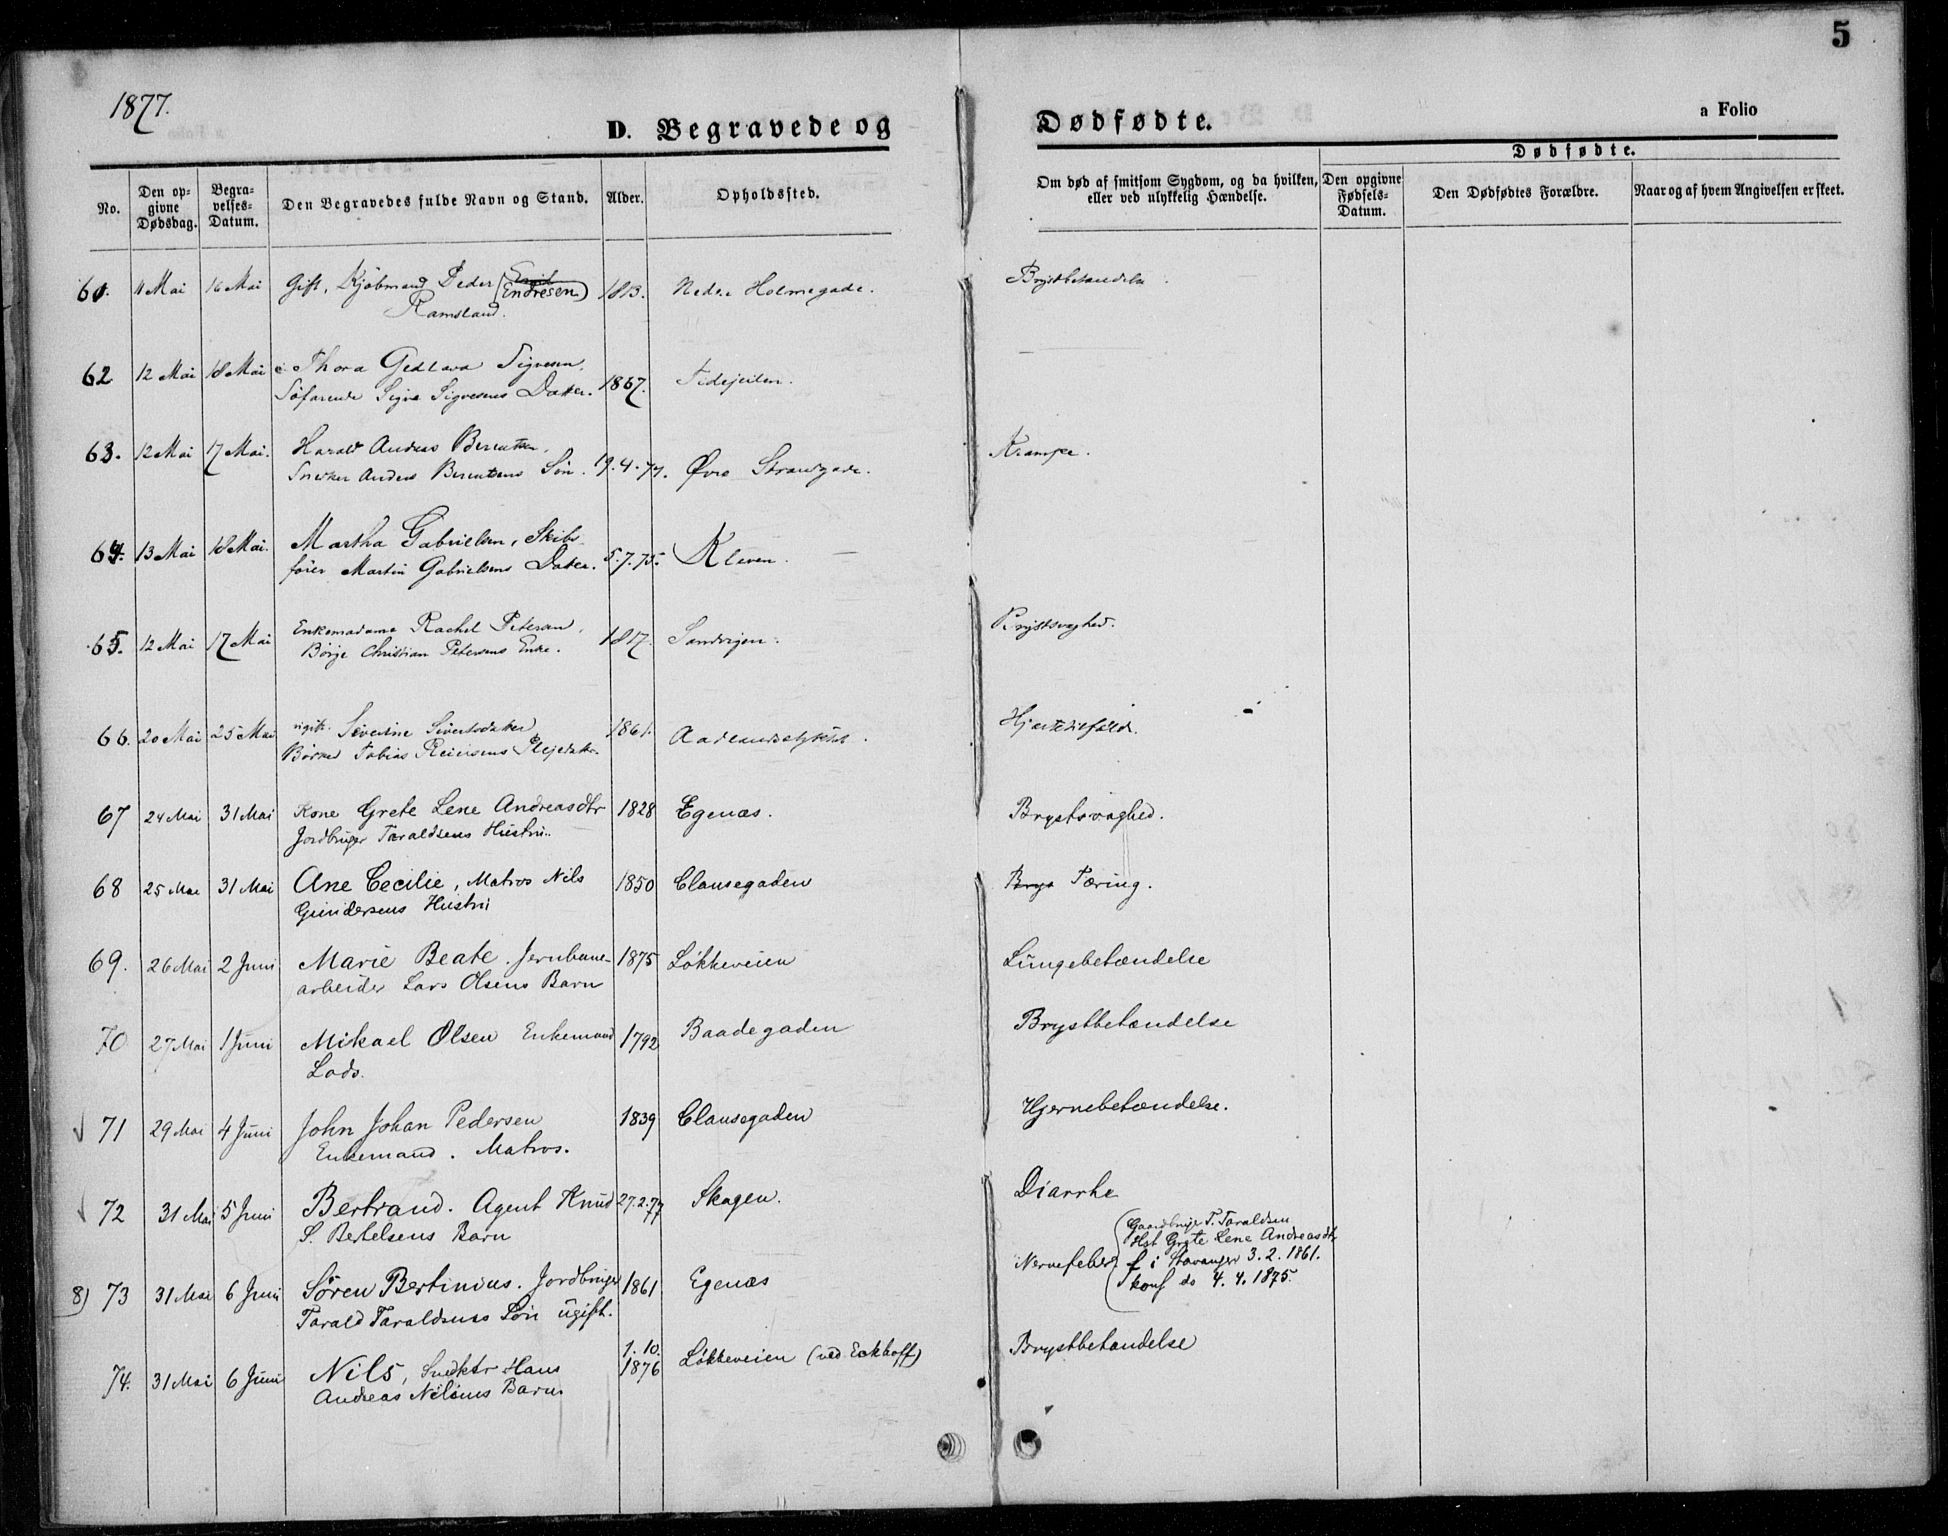 5
1877.
D. Begravede og Dødfødte.
a Folio
Dødfødte.
No.
Den opgivne Dødsdag.
Begravelses-Datum.
Den Begravedes fulde Navn og Stand.
Alder.
Opholdssted.
Om død af smitsom Sygdom, og da hvilken, eller ved ulykkelig Hændelse.
Den opgivne Fødsels-Datum.
Den Dødfødtes Forældre.
Naar og af hvem Angivelsen er skeet.
61. 11 Mai 16 Mai Gift, Kjøbmand Peder (Endresen) 1813. Nedre Holmegade. Brystbetændelse
Ramsland.
62 12 Mai 18 Mai Thora Gedlava Sigvesen, 1867.
Søfarende Sigve Sigvesens Datter.
63. 12 Mai 17 Mai. Harald Andreas Berentsen, 19.4.77. Øvre Strandgade. Krampe.
Snedker Anders Berentsens Søn.
64. 13 Mai 18 Mai. Martha Gabrielsen, Skibs- 5.7.75. Kleven.
fører Martin Gabrielsens Datter.
65. 12 Mai 17 Mai Enkemadame Rachel Petersen, 1817. Sandvigen. Brystsvaghed.
Børge Christian Petersens Enke.
66. 20 Mai 25 Mai ugift. Severine Sivertsdatter 1861. Aadlandsstykket. Hjertetilfælde.
Tobias Reiersens Plejedatter.
67 24 Mai 31 Mai Kone Grete Lene Andreasdtr 1828 Egenæs. Brystsvaghed.
Jordbruger Taraldsens Hustru.
68 25 Mai 31 Mai Ane Cecilie, Matros Nils 1850 Clausegaden Brys Tæring.
Gundersens Hustru
69. 26 Mai 2 Juni Marie Beate. Jernbane- 1875 Løkkeveien Lungebetændelse
arbeider Lars Olsens Barn
70 27 Mai 1 Juni Mikael Olsen Enkemand 1792 Baadegaden Brystbetændelse
Lods.
71 29 Mai 4 Juni John Johan Pedersen 1839 Clausegaden Hjernebetændelse.
Enkemand. Matros.
72 31 Mai 5 Juni Bertrand. Agent Knud 27.2.77 Skagen. Diarrhe
S. Bertelsens Barn
8) 73 31 Mai 6 Juni Sören Bertinius. Jordbruger 1861 Egenæs Nervefeber
Tarald Taraldsens Søn ugift.
(Gaardbruger T. Taraldsen
Hst Grete Lene Andreasdtr
f i Stavanger 3.2.1861.
konf do 4.4.1875.
74. 31 Mai 6 Juni Nils, Snedker Hans 1.10. 1876 Løkkeveien (ved Eckhoff) Brystbetændelse
Andreas Nilsens Barn